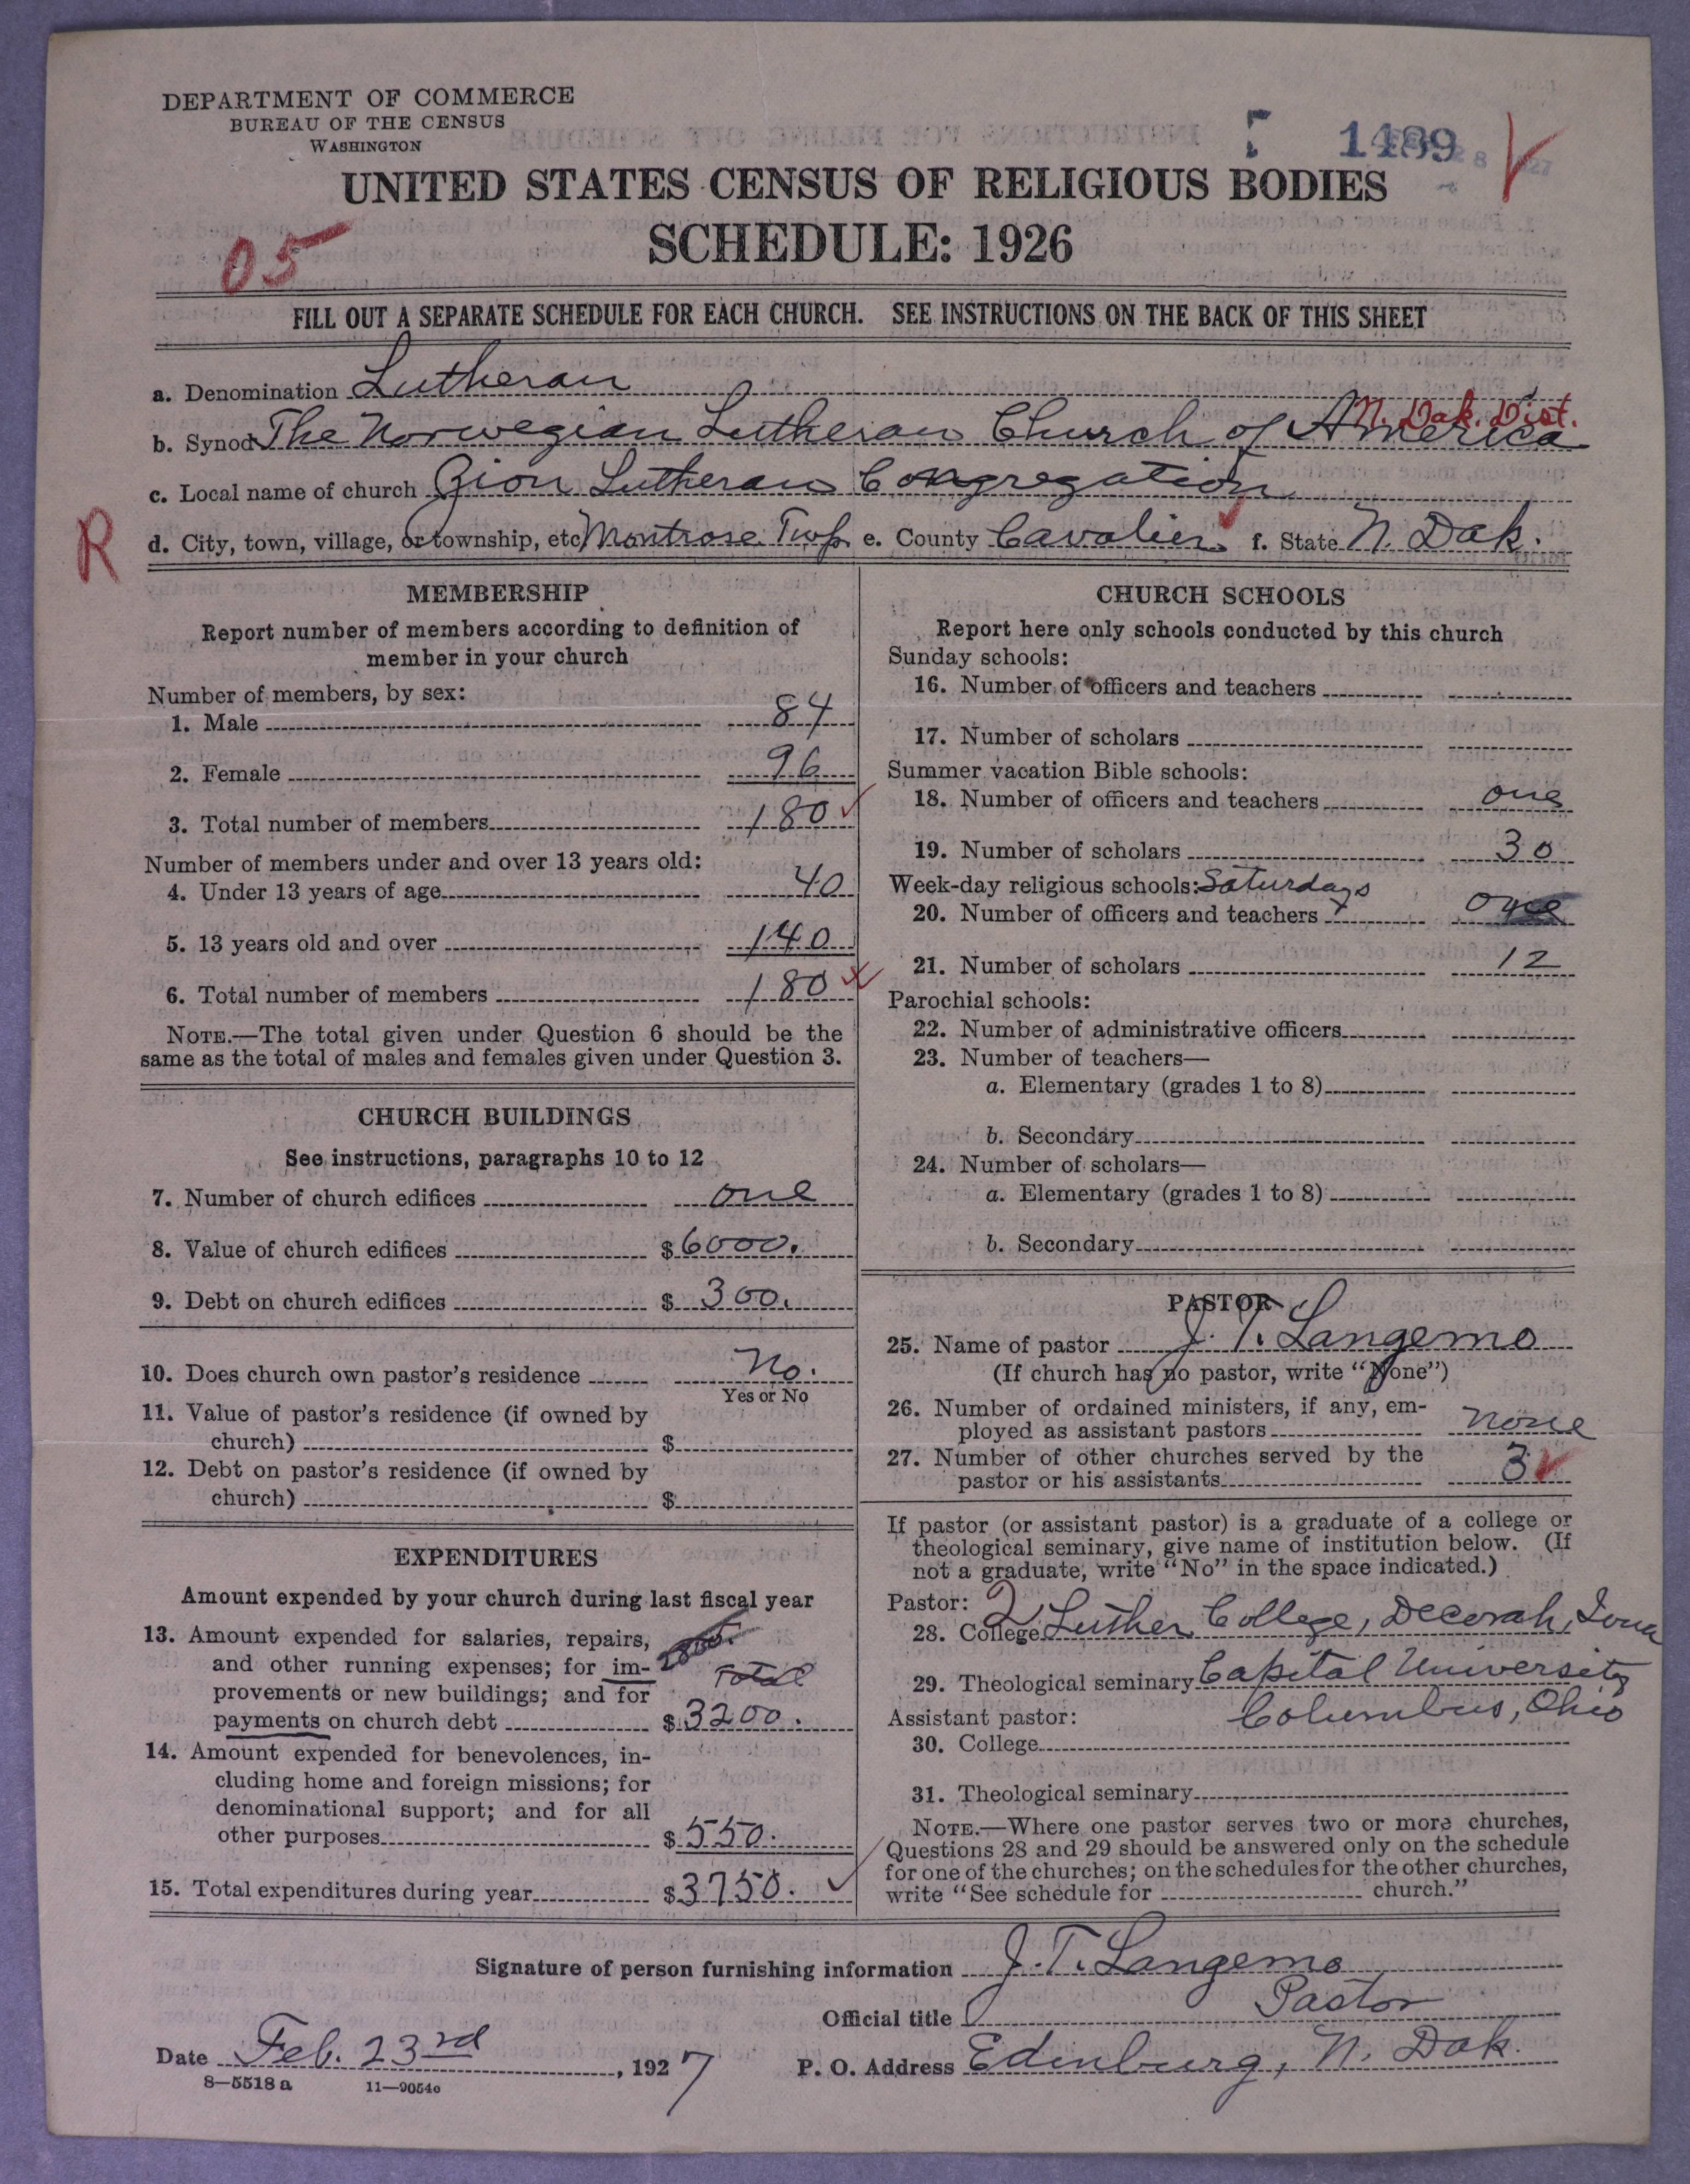 DEPARTMENT OF COMMERCE
BUREAU OF THE CENSUS
WASHINGTON
1489
UNITED STATES CENSUS OF RELIGIOUS BODIES
SCHEDULE: 1926
05
FILL OUT A SEPARATE SCHEDULE FOR EACH CHURCH. SEE INSTRUCTIONS ON THE BACK OF THIS SHEET
a. Denomination Lutheran
N. Dak. Dist.
b. Synod The Norwegian Lutheran Church of America
c. Local name of church Zion Lutheran Congregation
R
d. City, town, village, or township, etc. Montrose Twp. e. County Cavalier f. State N. Dak.
MEMBERSHIP
Report number of members according to definition of
member in your church
Number of members, by sex:
1. Male 84
2. Female 96
3. Total number of members 180
Number of members under and over 13 years old:
4. Under 13 years of age 40
5. 13 years old and over 140
6. Total number of members 180
NOTE.—The total given under Question 6 should be the
same as the total of males and females given under Question 3.
CHURCH BUILDINGS
See instructions, paragraphs 10 to 12
7. Number of church edifices one
8. Value of church edifices $6000.
9. Debt on church edifices $300.
10. Does church own pastor's residence No.
Yes or No
11. Value of pastor's residence (if owned by
church) $
12. Debt on pastor's residence (if owned by
church) $
EXPENDITURES
Amount expended by your church during last fiscal year
13. Amount expended for salaries, repairs,
and other running expenses; for im-
provements or new buildings; and for Total
payments on church debt $3200.
14. Amount expended for benevolences, in-
cluding home and foreign missions; for
denominational support; and for all
other purposes $550.
15. Total expenditures during year $3750.
CHURCH SCHOOLS
Report here only schools conducted by this church
Sunday schools:
16. Number of officers and teachers
17. Number of scholars
Summer vacation Bible schools:
18. Number of officers and teachers one
19. Number of scholars 30
Week-day religious schools: Saturdays
20. Number of officers and teachers one
21. Number of scholars 12
Parochial schools:
22. Number of administrative officers
23. Number of teachers—
a. Elementary (grades 1 to 8)
b. Secondary
24. Number of scholars—
a. Elementary (grades 1 to 8)
b. Secondary
PASTOR
25. Name of pastor J. T. Langemo
(If church has no pastor, write "None")
26. Number of ordained ministers, if any, em-
ployed as assistant pastors none
27. Number of other churches served by the
pastor or his assistants 3
If pastor (or assistant pastor) is a graduate of a college or
theological seminary, give name of institution below. (If
not a graduate, write "No" in the space indicated.)
Pastor: 2
28. College Luther College, Decorah, Iowa
29. Theological seminary Capital University
Assistant pastor: Columbus, Ohio
30. College
31. Theological seminary
NOTE.—Where one pastor serves two or more churches,
Questions 28 and 29 should be answered only on the schedule
for one of the churches; on the schedules for the other churches,
write "See schedule for church."
Signature of person furnishing information J. T. Langemo
Official title Pastor
Date Feb. 23rd, 1927 P. O. Address Edinburg, N. Dak.
8—5518 a 11—9054o